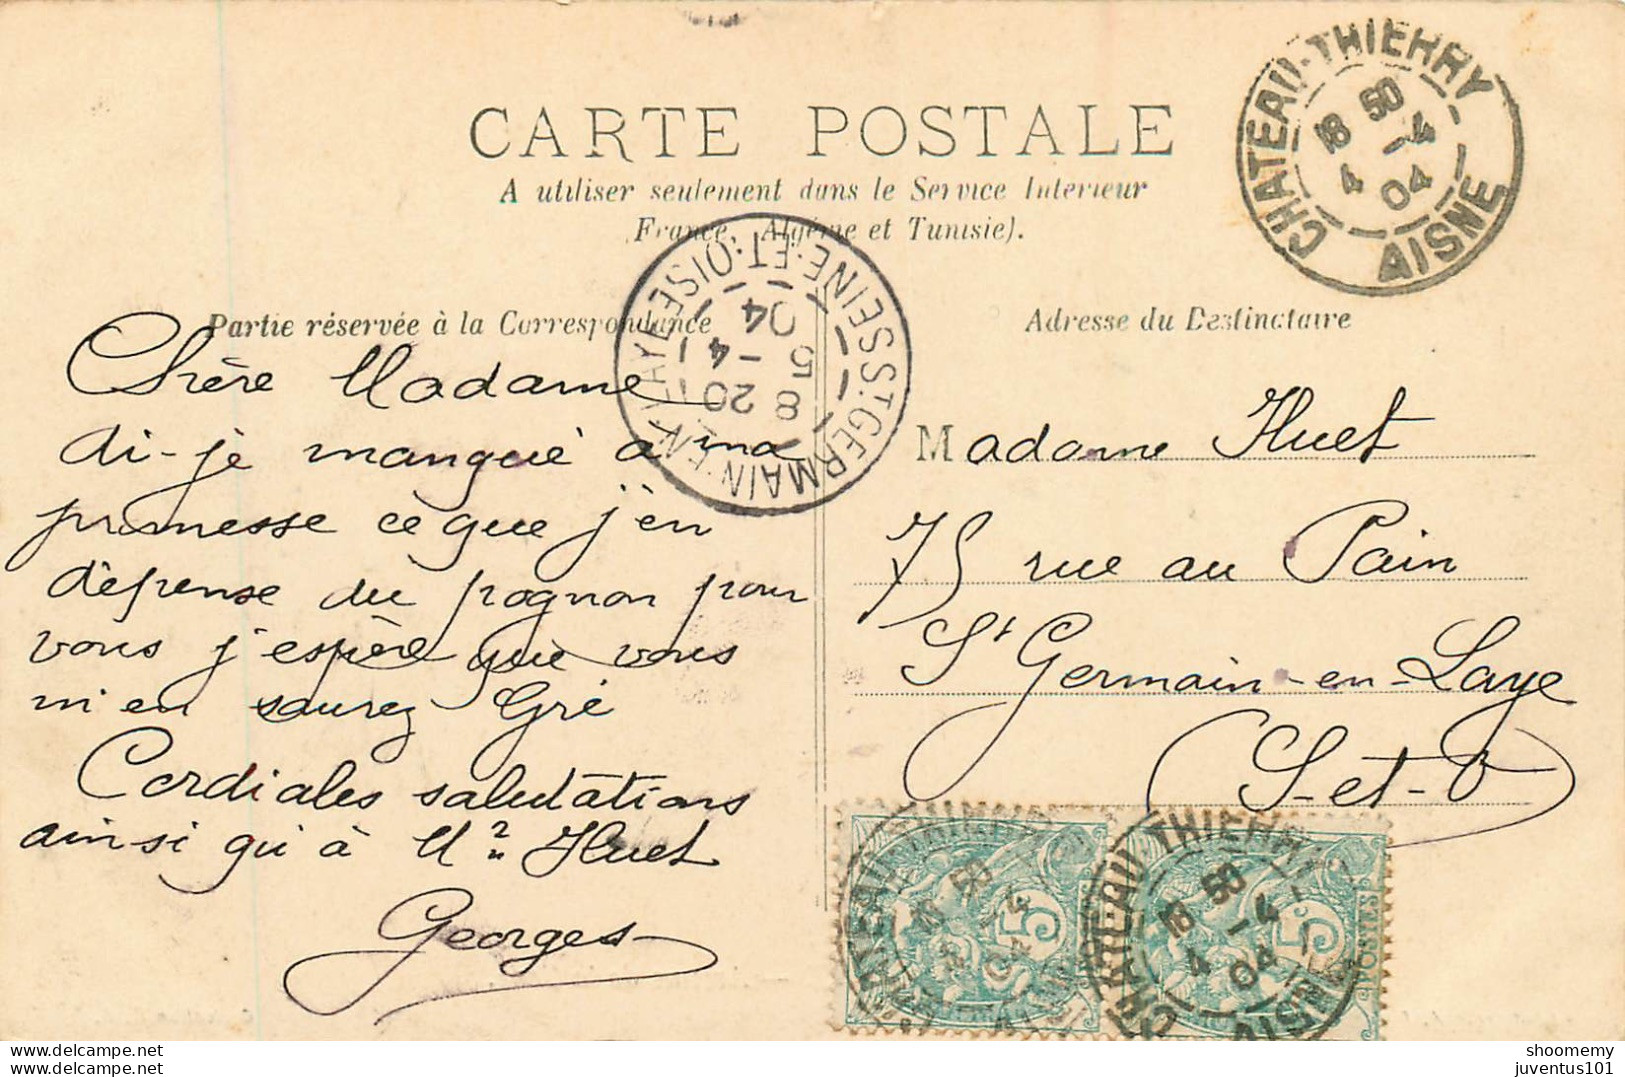 CARTE POSTALE
A utiliser seulement dans le Service Intérieur
(France, Algérie et Tunisie).
CHATEAU-THIERRY
18 50
4 -4
04
AISNE
Partie réservée à la Correspondance
Adresse du Destinataire
ST GERMAIN-EN-LAYE
SEINE-ET-OISE
8 20
5 -4
04
Chère Madame
ai-je manqué à ma
promesse ce que j'en
dépense du pognon pour
vous j'espère que vous
m'en saurez Gré
Cordiales salutations
ainsi qu'à Mr Huet
Georges
Madame Huet
75 rue au Pain
St Germain-en-Laye
S-et-O
CHATEAU-THIERRY
18 50
4 -4
04
AISNE
5
CHATEAU-THIERRY
18 50
4 -4
04
AISNE
5c
POSTES
shoomemy
juventus101